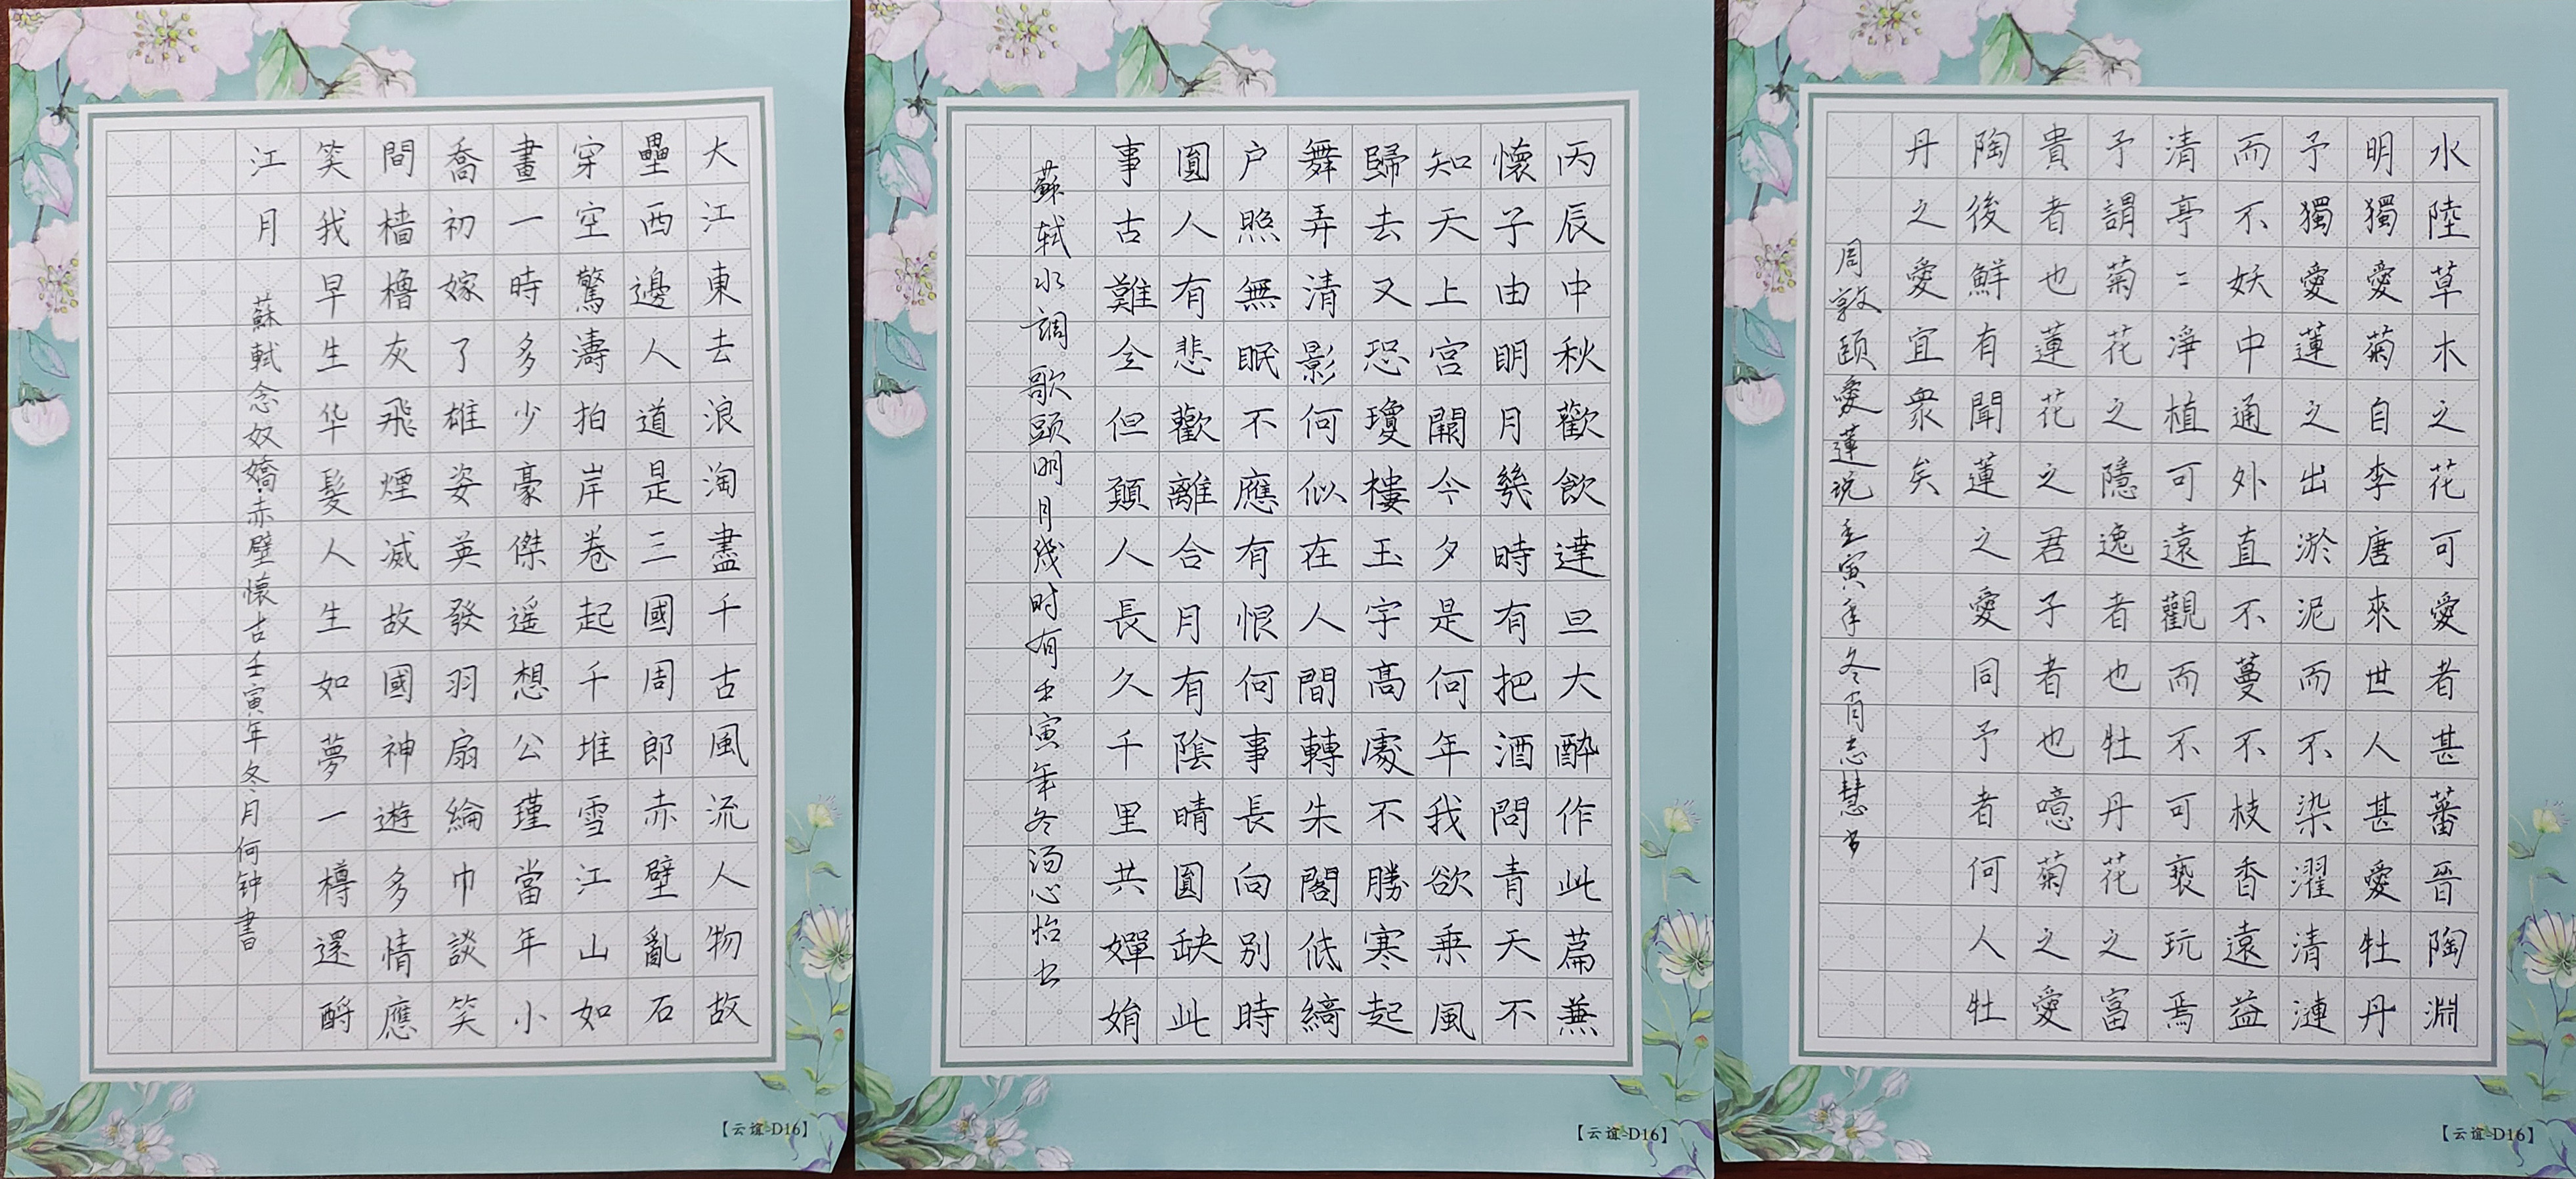 大江東去浪淘盡千古風流人物故
壘西邊人道是三國周郎赤壁亂石
穿空驚濤拍岸卷起千堆雪江山如
畫一時多少豪傑遥想公瑾當年小
喬初嫁了雄姿英發羽扇綸巾談笑
間檣櫓灰飛煙滅故國神遊多情應
笑我早生华髮人生如夢一樽還酹
江月
蘇軾念奴嬌·赤壁懷古壬寅年冬月何钟書
【云谊-D16】
丙辰中秋歡飲達旦大醉作此篇兼
懷子由明月幾時有把酒問青天不
知天上宮闕今夕是何年我欲乘風
歸去又恐瓊樓玉宇高處不勝寒起
舞弄清影何似在人間轉朱閣低綺
户照無眠不應有恨何事長向别時
圓人有悲歡離合月有陰晴圓缺此
事古難全但願人長久千里共嬋娟
蘇轼水調歌頭明月幾时有壬寅年冬汤心怡书
【云谊-D16】
水陸草木之花可愛者甚蕃晉陶淵
明獨愛菊自李唐來世人甚愛牡丹
予獨愛蓮之出淤泥而不染濯清漣
而不妖中通外直不蔓不枝香遠益
清亭〻淨植可遠觀而不可褻玩焉
予謂菊花之隱逸者也牡丹花之富
貴者也蓮花之君子者也噫菊之愛
陶後鮮有聞蓮之愛同予者何人牡
丹之愛宜衆矣
周敦颐愛蓮说壬寅年冬肖志慧书
【云谊-D16】